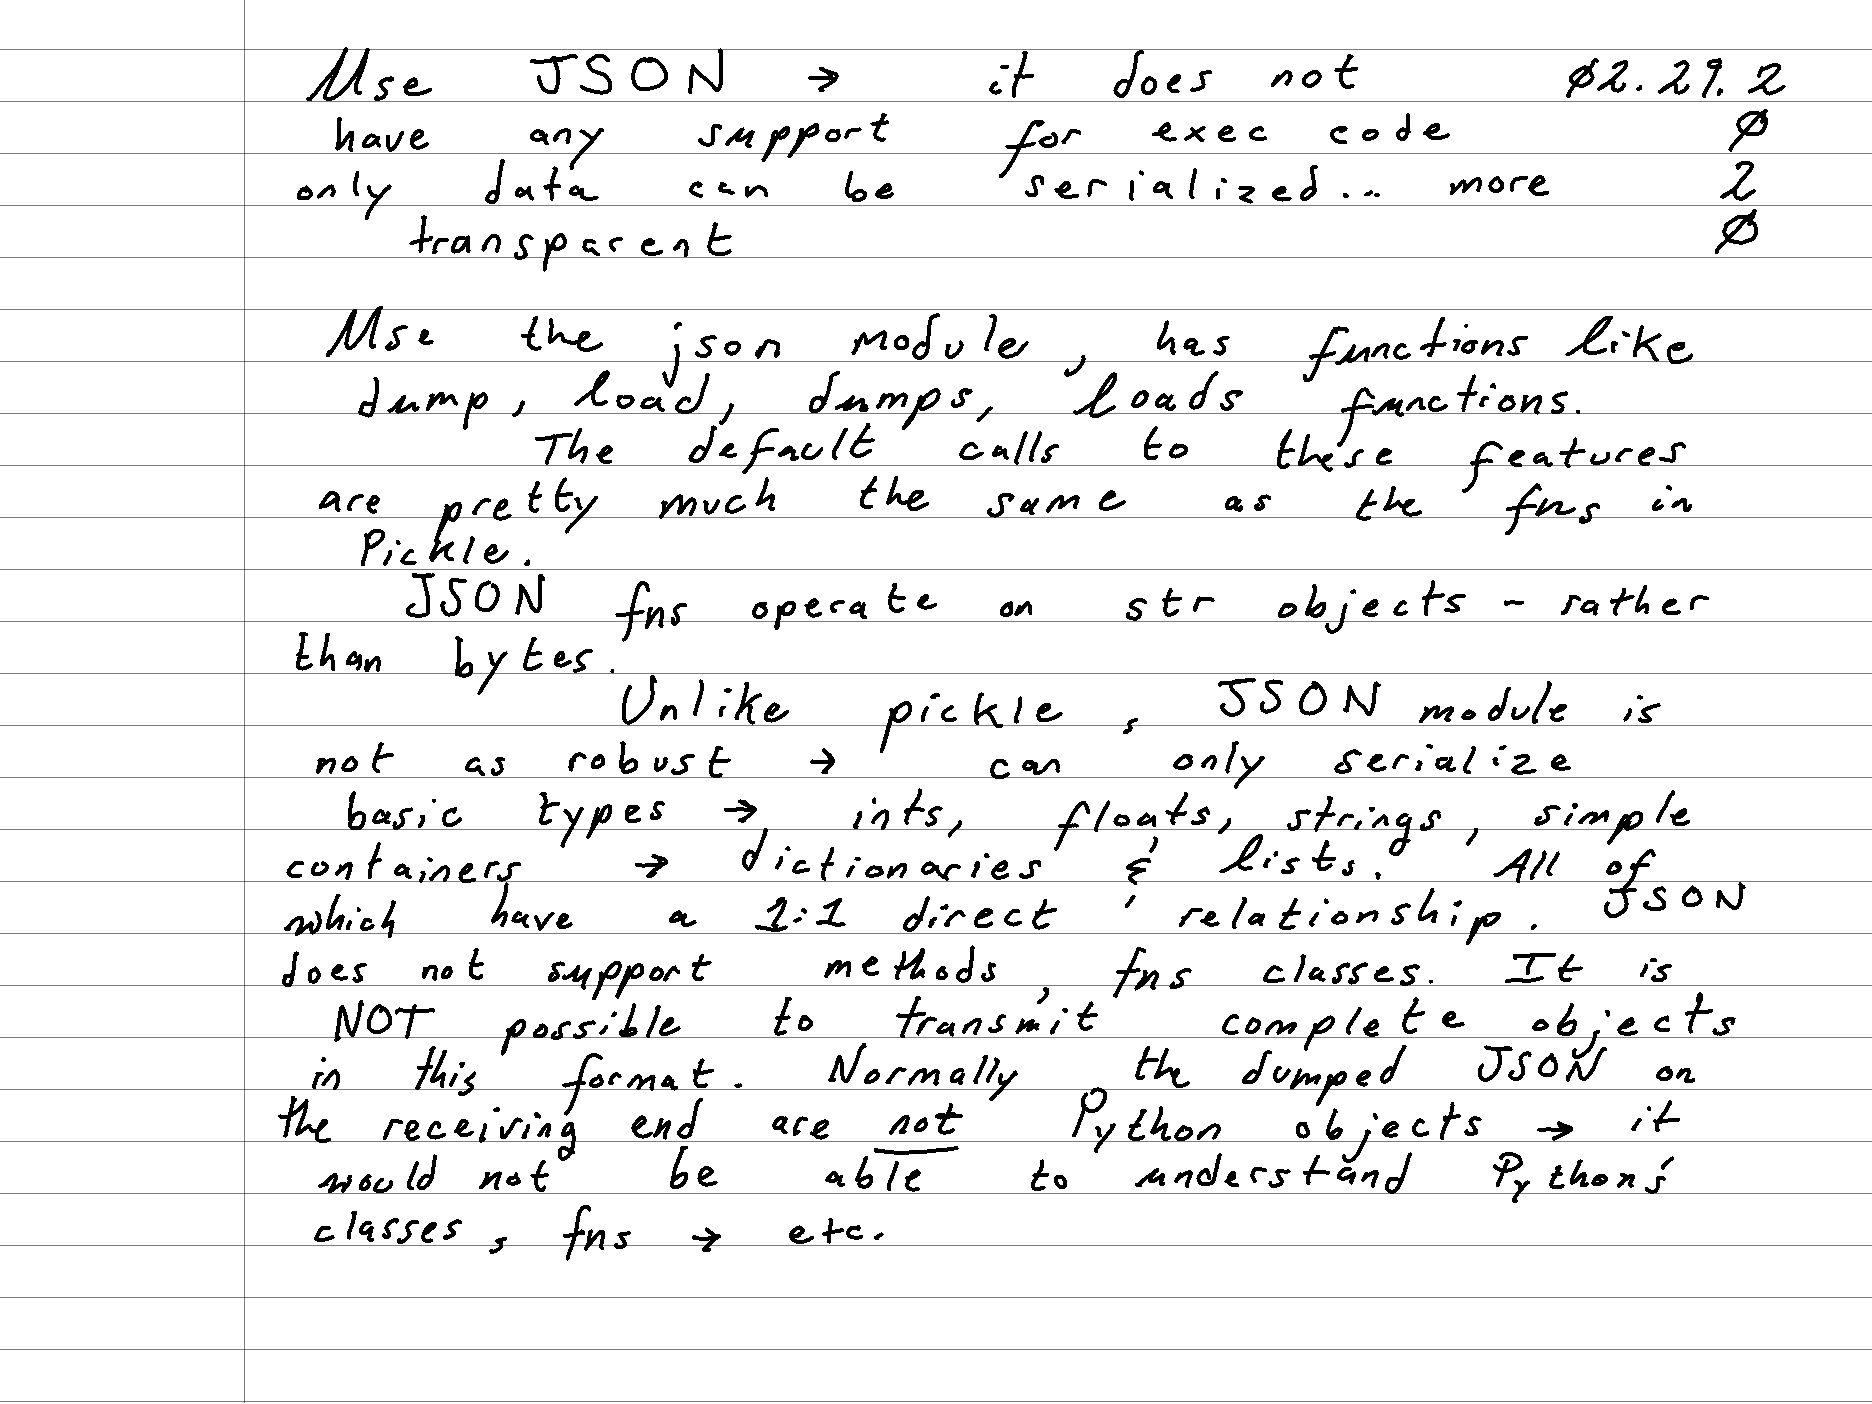 Use JSON → it does not Ø2.29.2
have any support for exec code Ø
only data can be serialized... more 2
transparent Ø
Use the json module, has functions like
dump, load, dumps, loads functions.
The default calls to these features
are pretty much the same as the fns in
Pickle.
JSON fns operate on str objects - rather
than bytes.
Unlike pickle, JSON module is
not as robust → can only serialize
basic types → ints, floats, strings, simple
containers → dictionaries & lists. All of
which have a 1:1 direct relationship. JSON
does not support methods, fns classes. It is
NOT possible to transmit complete objects
in this format. Normally the dumped JSON on
the receiving end are not Python objects → it
would not be able to understand Python's
classes, fns → etc.